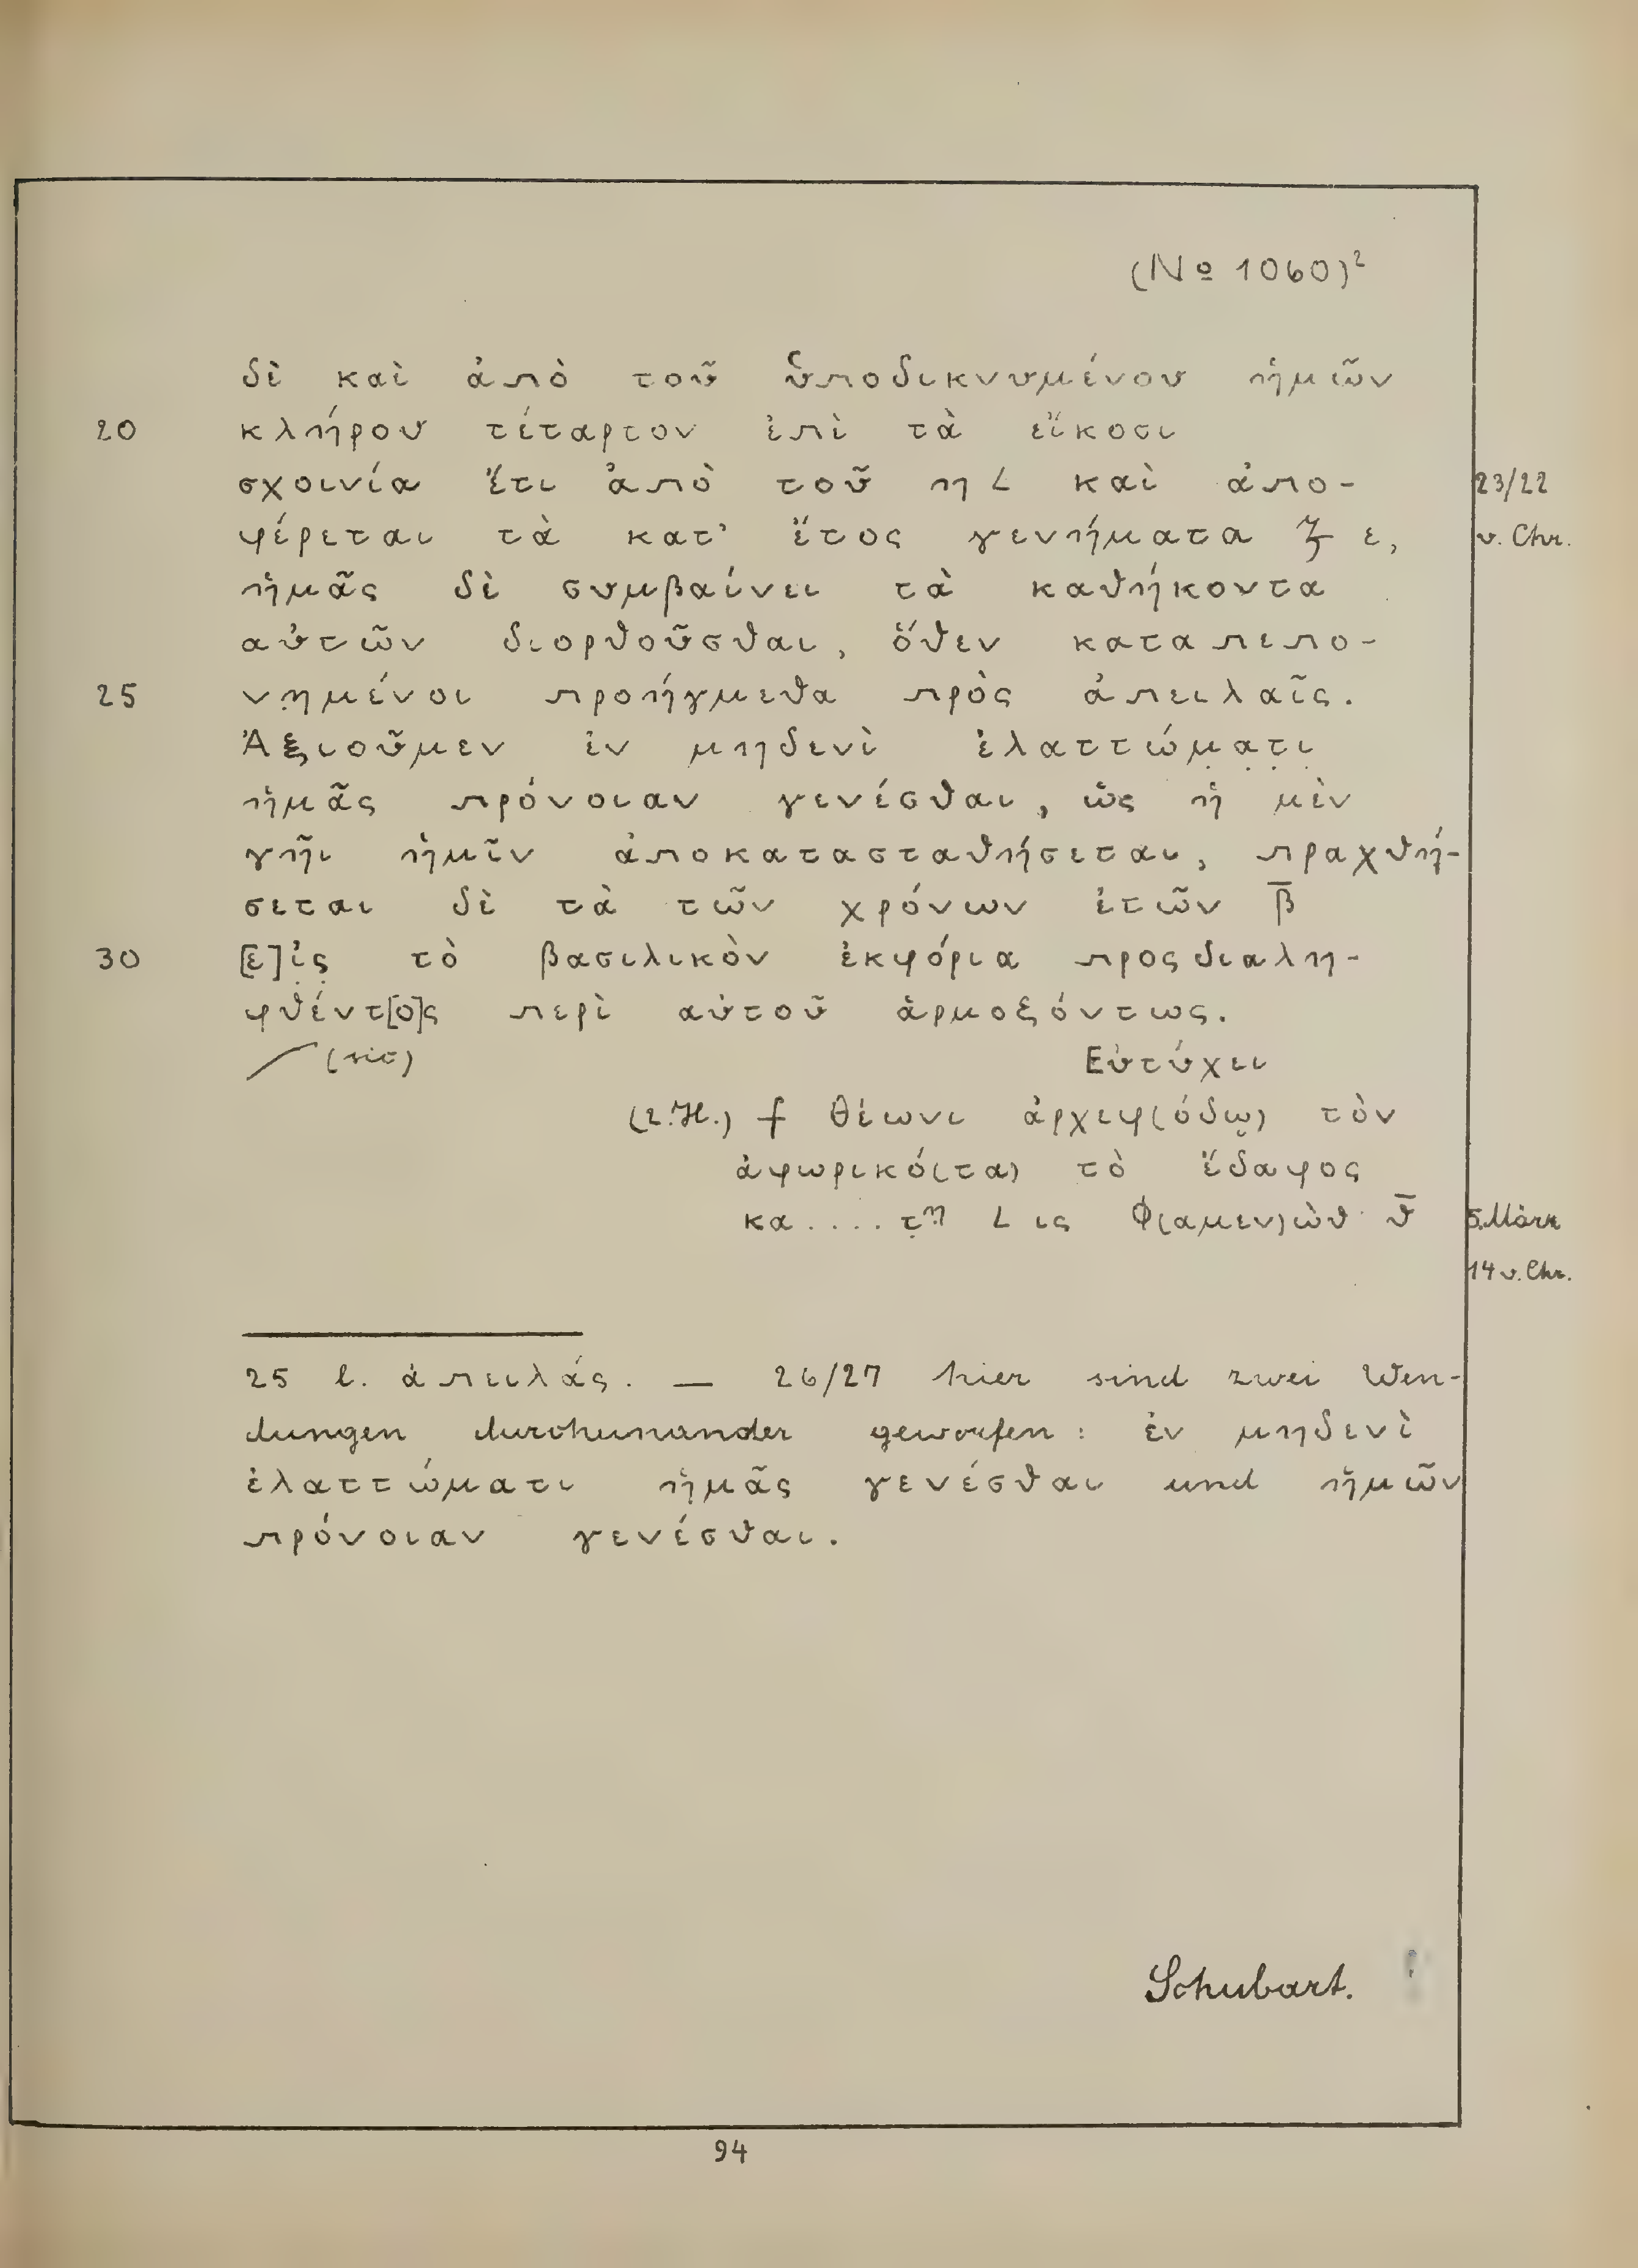 (No 1060)²
δὲ καὶ ἀπὸ τοῦ ὑποδικνυμένου ἡμῶν
20 κλήρου τέταρτον ἐπὶ τὰ εἴκοσι
σχοινία ἔτι ἀπὸ τοῦ η L καὶ ἀπο- 23/22
φέρεται τὰ κατ' ἔτος γενήματα ε, v. Chr.
ἡμᾶς δὲ συμβαίνει τὰ καθήκοντα
αὐτῶν διορθοῦσθαι, ὅθεν καταπεπο-
25 νημένοι προήγμεθα πρὸς ἀπειλαῖς.
Ἀξιοῦμεν ἐν μηδενὶ ἐλαττώμ̣α̣τ̣ι̣
ἡμᾶς πρόνοιαν γενέσθαι, ὡς ἡ μὲν
γῆι ἡμῖν ἀποκατασταθήσεται, πραχθή-
σεται δὲ τὰ τῶν χρόνων ἐτῶν β̅
30 [ε]ἰ̣ς̣ τὸ βασιλικὸν ἐκφόρια προςδιαλη-
φθέντ[ο]ς περὶ αὐτοῦ ἁρμοξόντως.
(sic) Εὐτύχει
(2.H.) Θέωνι ἀρχεφ(όδῳ) τὸν
ἀφωρικό(τα) τὸ ἔδαφος
κα .... τ̣η̣ L ις Φ(αμεν)ὼθ θ̅ 5. März
14 v. Chr.
25 l. ἀπειλάς. — 26/27 hier sind zwei Wen-
dungen durcheinander geworfen: ἐν μηδενὶ
ἐλαττώματι ἡμᾶς γενέσθαι und ἡμῶν
πρόνοιαν γενέσθαι.
Schubart.
94